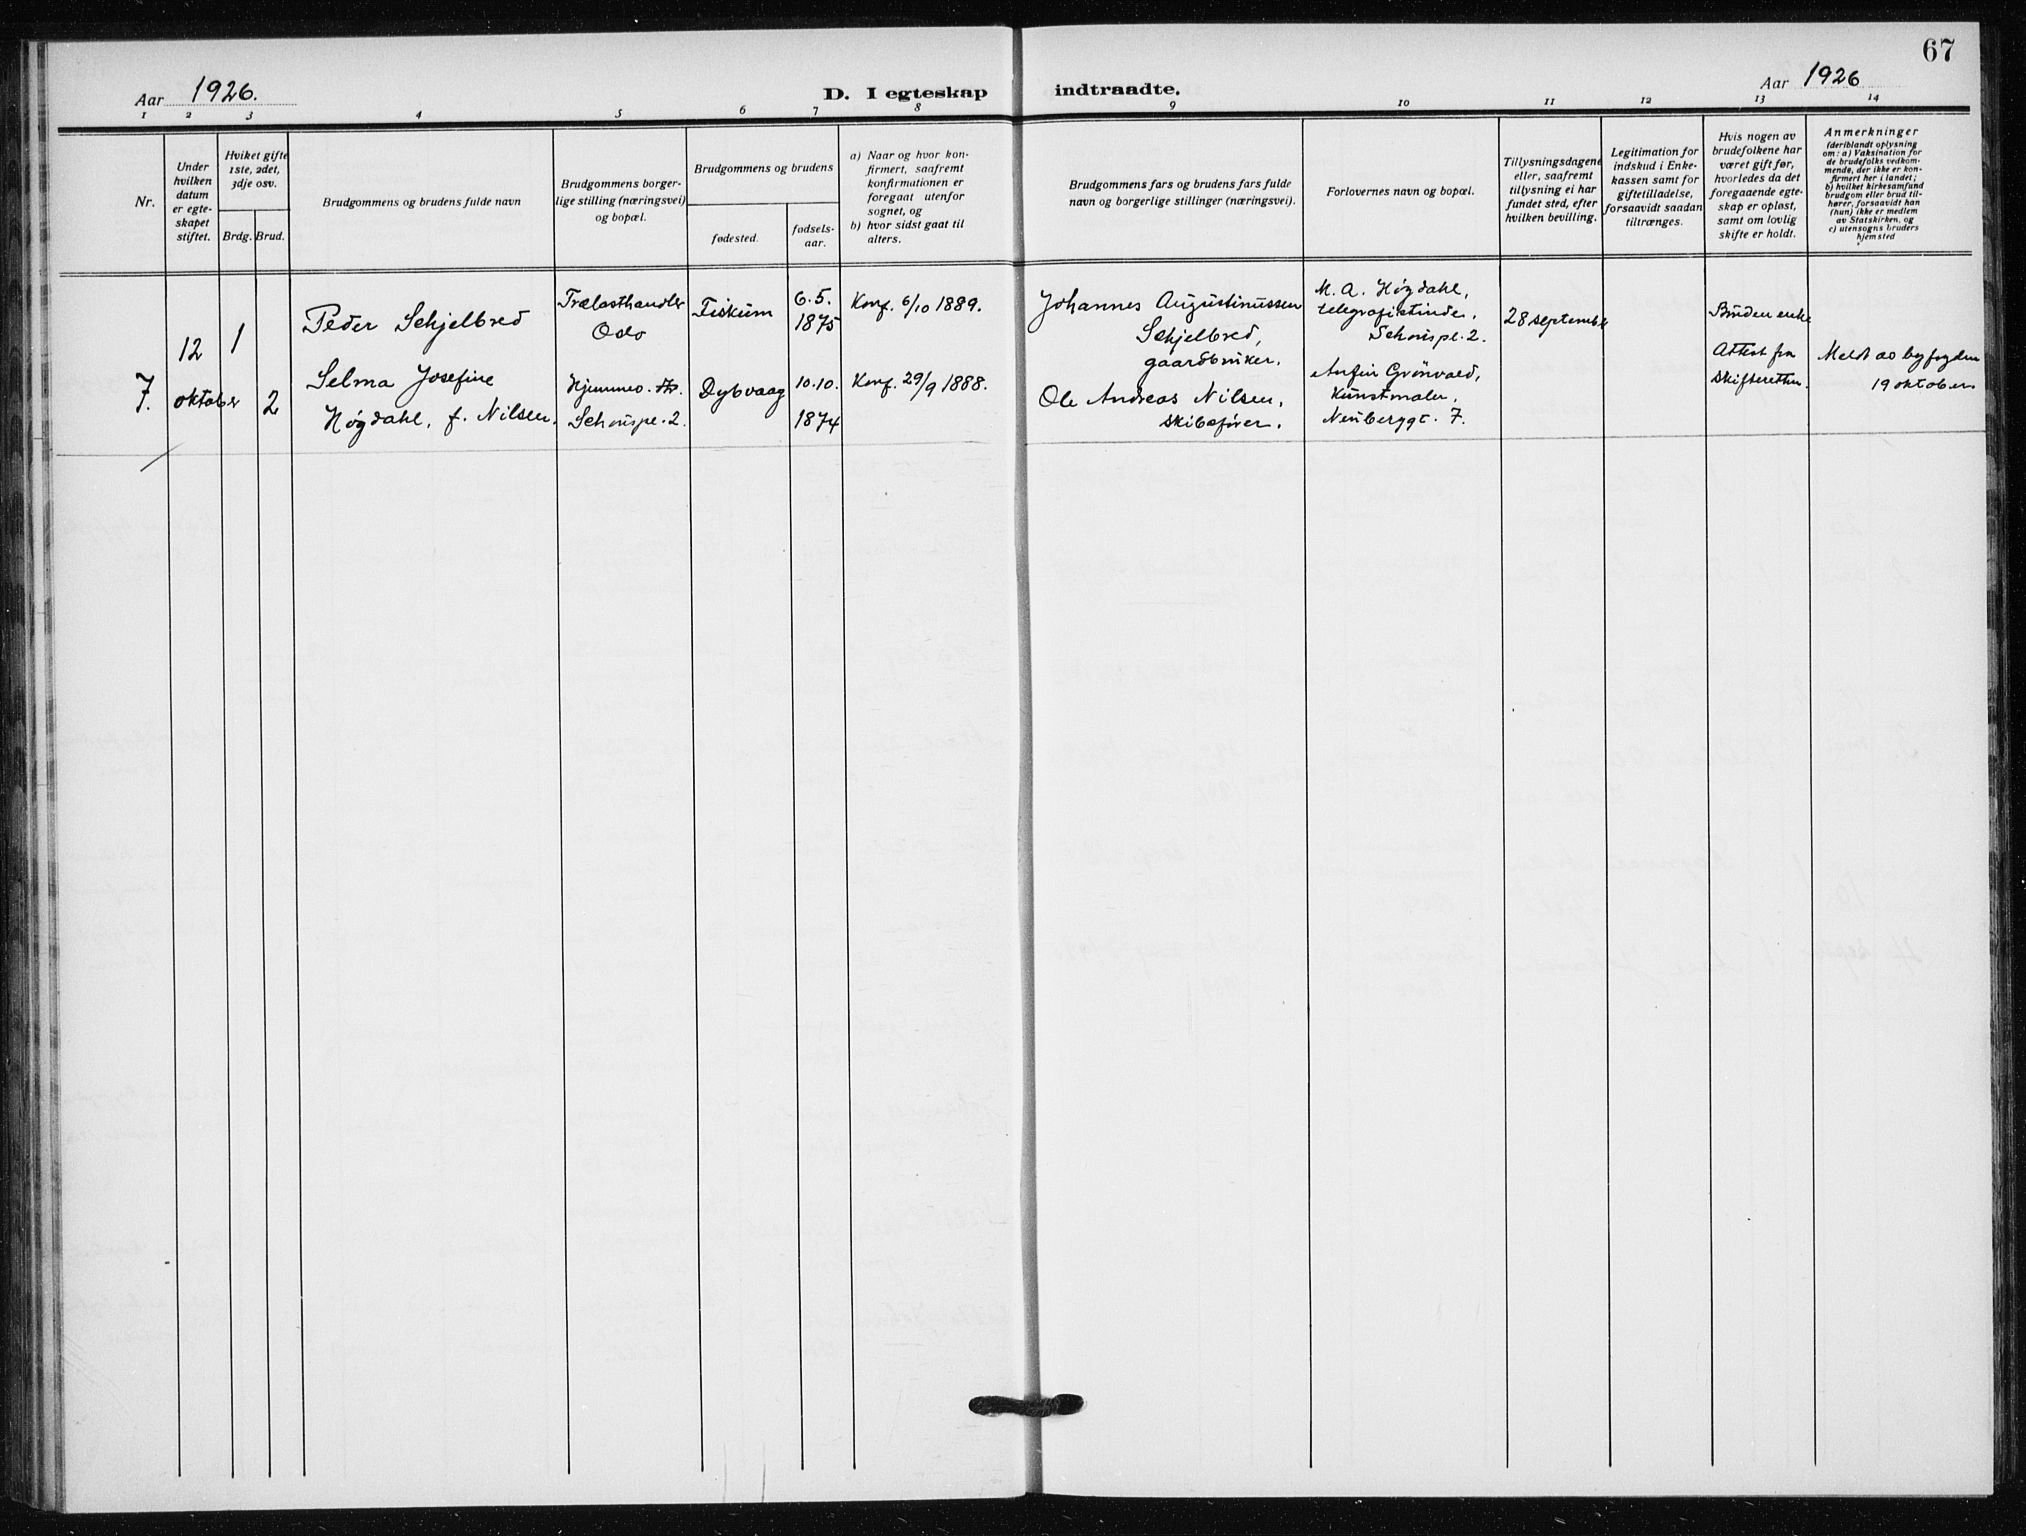 67
Aar 1926.
D. I egteskap indtraadte.
Aar 1926
1 2 3 4 5 6 7 8 9 10 11 12 13 14
Nr.
Under
hvilken
datum
er egte-
skapet
stiftet.
Hviket gifte
1ste, 2det,
3dje osv.
Brdg. Brud.
Brudgommens og brudens fulde navn
Brudgommens borger-
lige stilling (næringsvei)
og bopæl.
Brudgommens og brudens
fødested.
fødsels-
aar.
a) Naar og hvor kon-
firmert, saafremt
konfirmationen er
foregaat utenfor
sognet, og
b) hvor sidst gaat til
alters.
Brudgommens fars og brudens fars fulde
navn og borgerlige stillinger (næringsvei).
Forlovernes navn og bopæl.
Tillysningsdagene
eller, saafremt
tillysning ei har
fundet sted, efter
hvilken bevilling.
Legitimation for
indskud i Enke-
kassen samt for
giftetilladelse,
forsaavidt saadan
tiltrænges.
Hvis nogen av
brudefolkene har
været gift før,
hvorledes da det
foregaaende egte-
skap er opløst,
samt om lovlig
skifte er holdt.
Anmerkninger
(deriblandt oplysning
om: a) Vaksination for
de brudefolks vedkom-
mende, der ikke er kon-
firmert her i landet;
b) hvilket kirkesamfund
brudgom eller brud til-
hører, forsaavidt han
(hun) ikke er medlem
av Statskirken, og
c) utensogns bruders
hjemsted
7.
12
oktober
1
2
Peder Schjelbred
Selma Josefine
Høgdahl, f. Nilsen.
Trælasthandler
Oslo
Hjemmev.
Schouspl. 2.
Fiskum
Dybvaag
6.5.
1875
10.10.
1874
Konf. 6/10 1889.
Konf. 29/9 1888.
Johannes Augustinussen
Schjelbred,
gaardbruker.
Ole Andreas Nilsen,
skibsfører.
M. A. Høgdahl,
telegrafistinde,
Schouspl. 2.
Anfin Grönvald,
Kunstmaler,
Neuberggt. 7.
28 september
Bruden enke
Attest fra
Skifteretten.
Meldt av byfogden
19 oktober